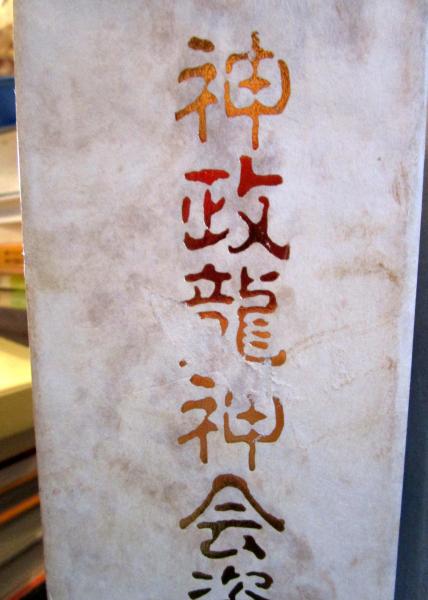 神政龍神会